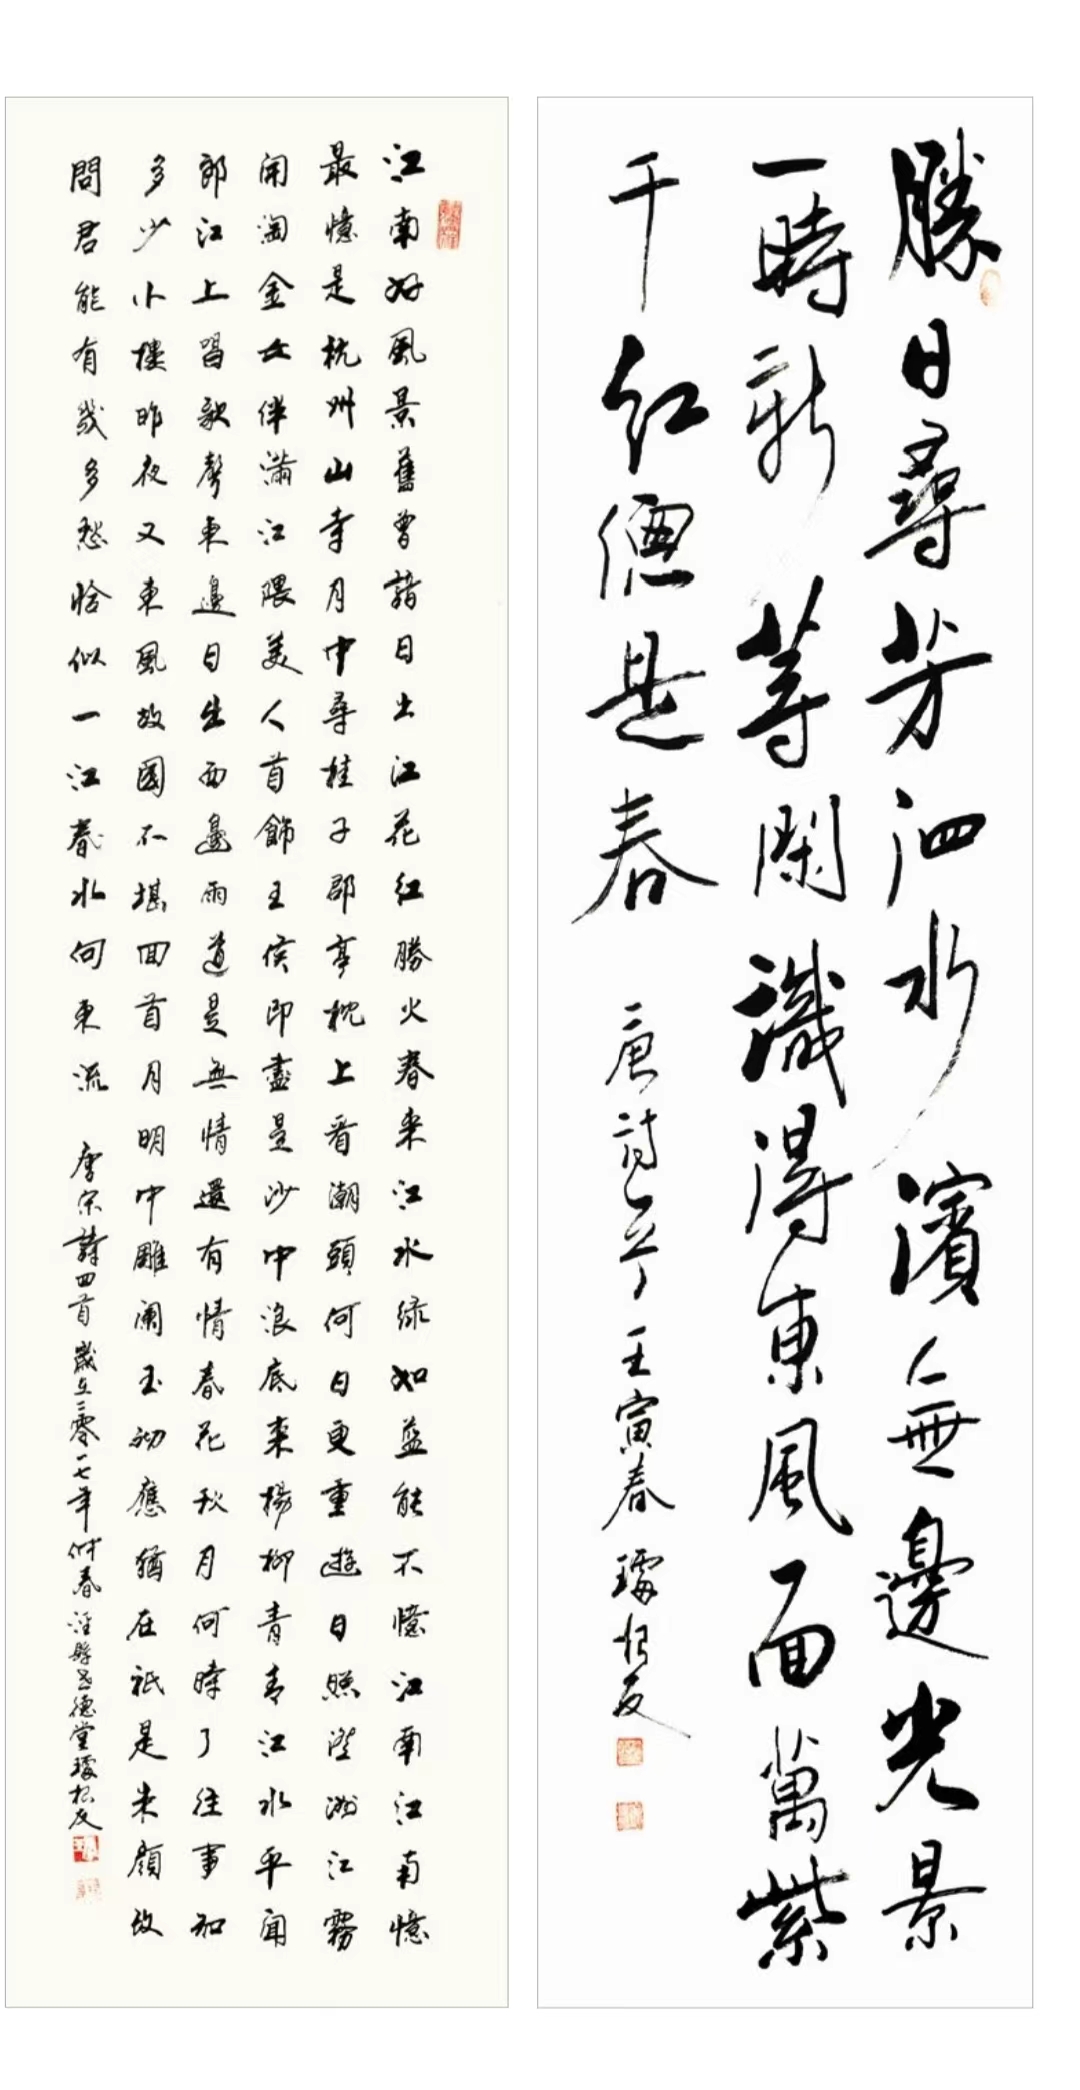 勝日尋芳泗水濱無邊光景
一時新等閑識得東風面萬紫
千紅總是春 唐詩一首 壬寅春 璩根友
江南好風景舊曾諳日出江花紅勝火春來江水綠如藍能不憶江南江南憶
最憶是杭州山寺月中尋桂子郡亭枕上看潮頭何日更重遊日照澄洲江霧
開淘金女伴滿江隈美人首飾王侯印盡是沙中浪底來楊柳青青江水平聞
郎江上唱歌聲東邊日出西邊雨道是無情還有情春花秋月何時了往事知
多少小樓昨夜又東風故國不堪回首月明中雕闌玉砌應猶在衹是朱顏改
問君能有幾多愁恰似一江春水向東流 唐宋詩四首 歲在二零一七年仲春 涇縣德堂璩根友